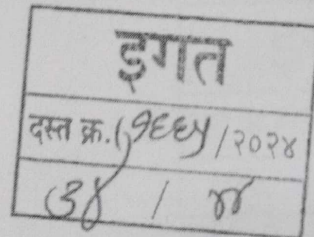 इगत
दस्त क्र.(१६६५/२०२४
३४ / ४४